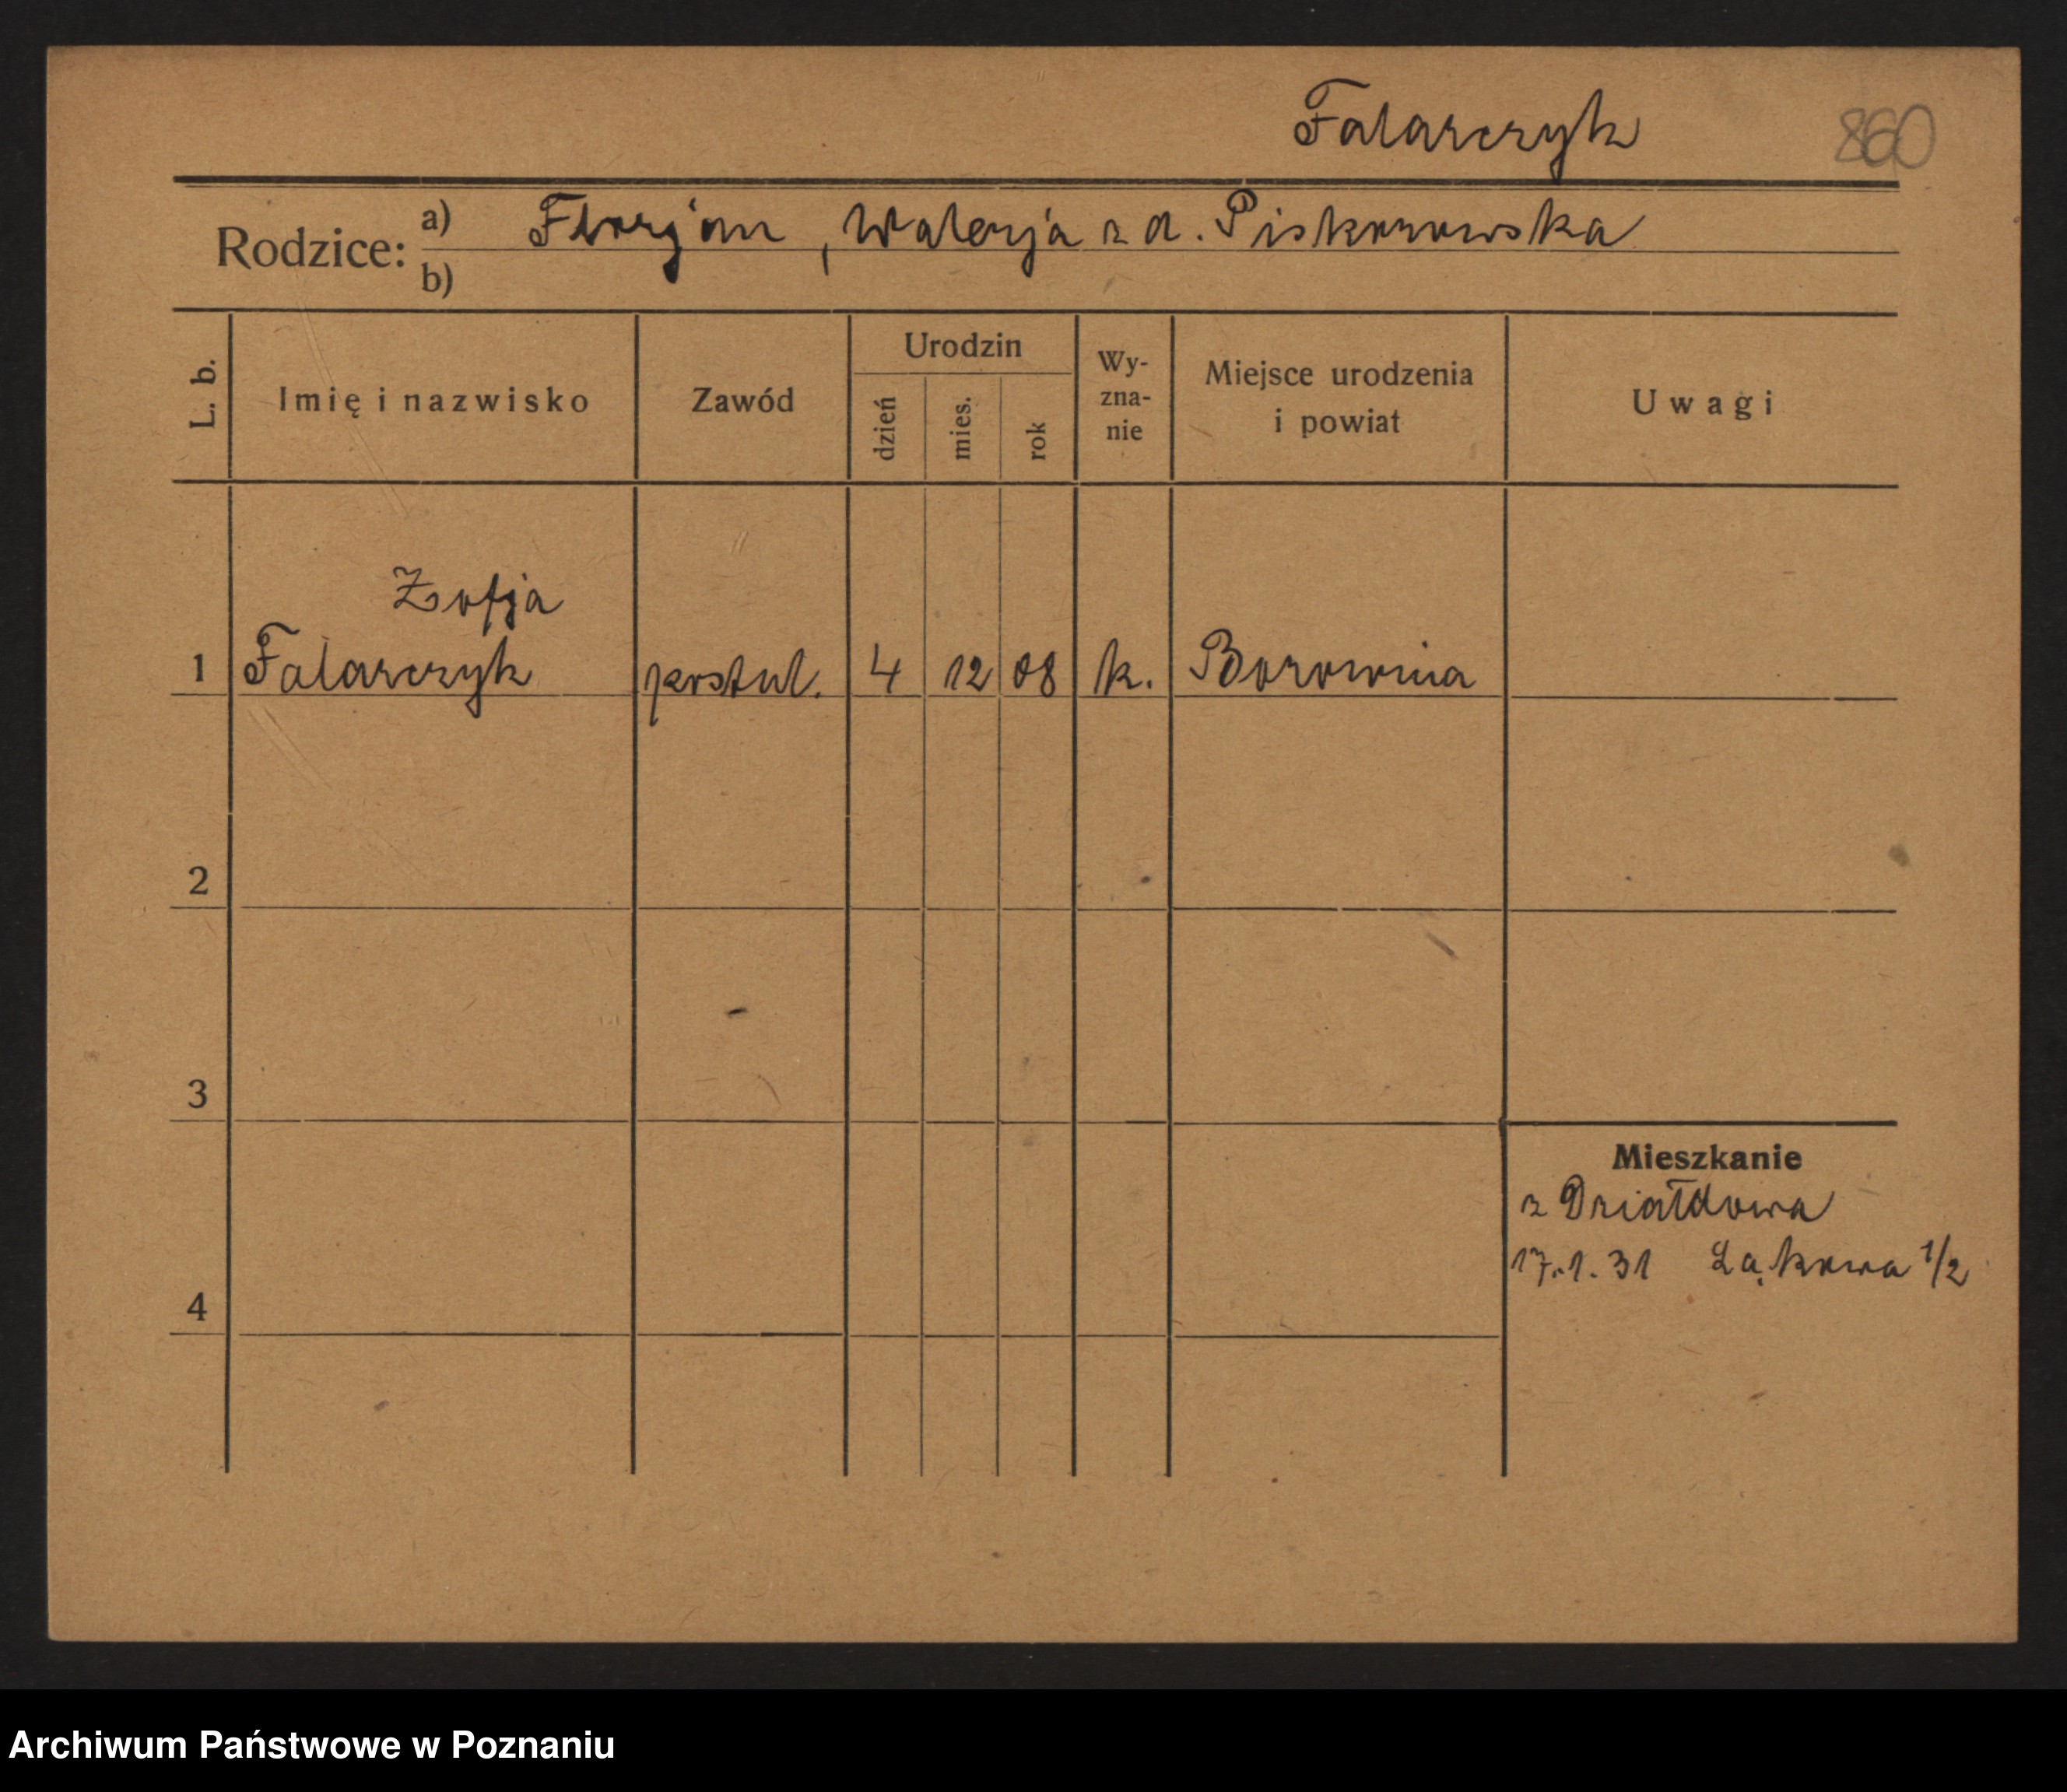 Falarczyk 860
Rodzice: a) Florjan, Walerja z d. Piskorzowska
b)
L. b. Imię i nazwisko Zawód Urodzin dzień mies. rok Wy-zna-nie Miejsce urodzenia i powiat Uwagi
Zofja
1 Falarczyk postul. 4 12 08 k. Borowina
2
3
Mieszkanie
z Działdowa
17.1.31 Łąkowa 1/2
4
Archiwum Państwowe w Poznaniu